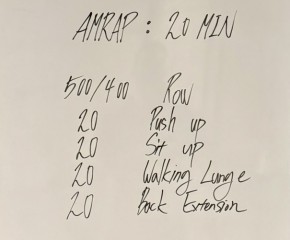 AMRAP : 20 MIN
500/400 Row
20 Push up
20 Sit up
20 Walking Lunge
20 Back Extension